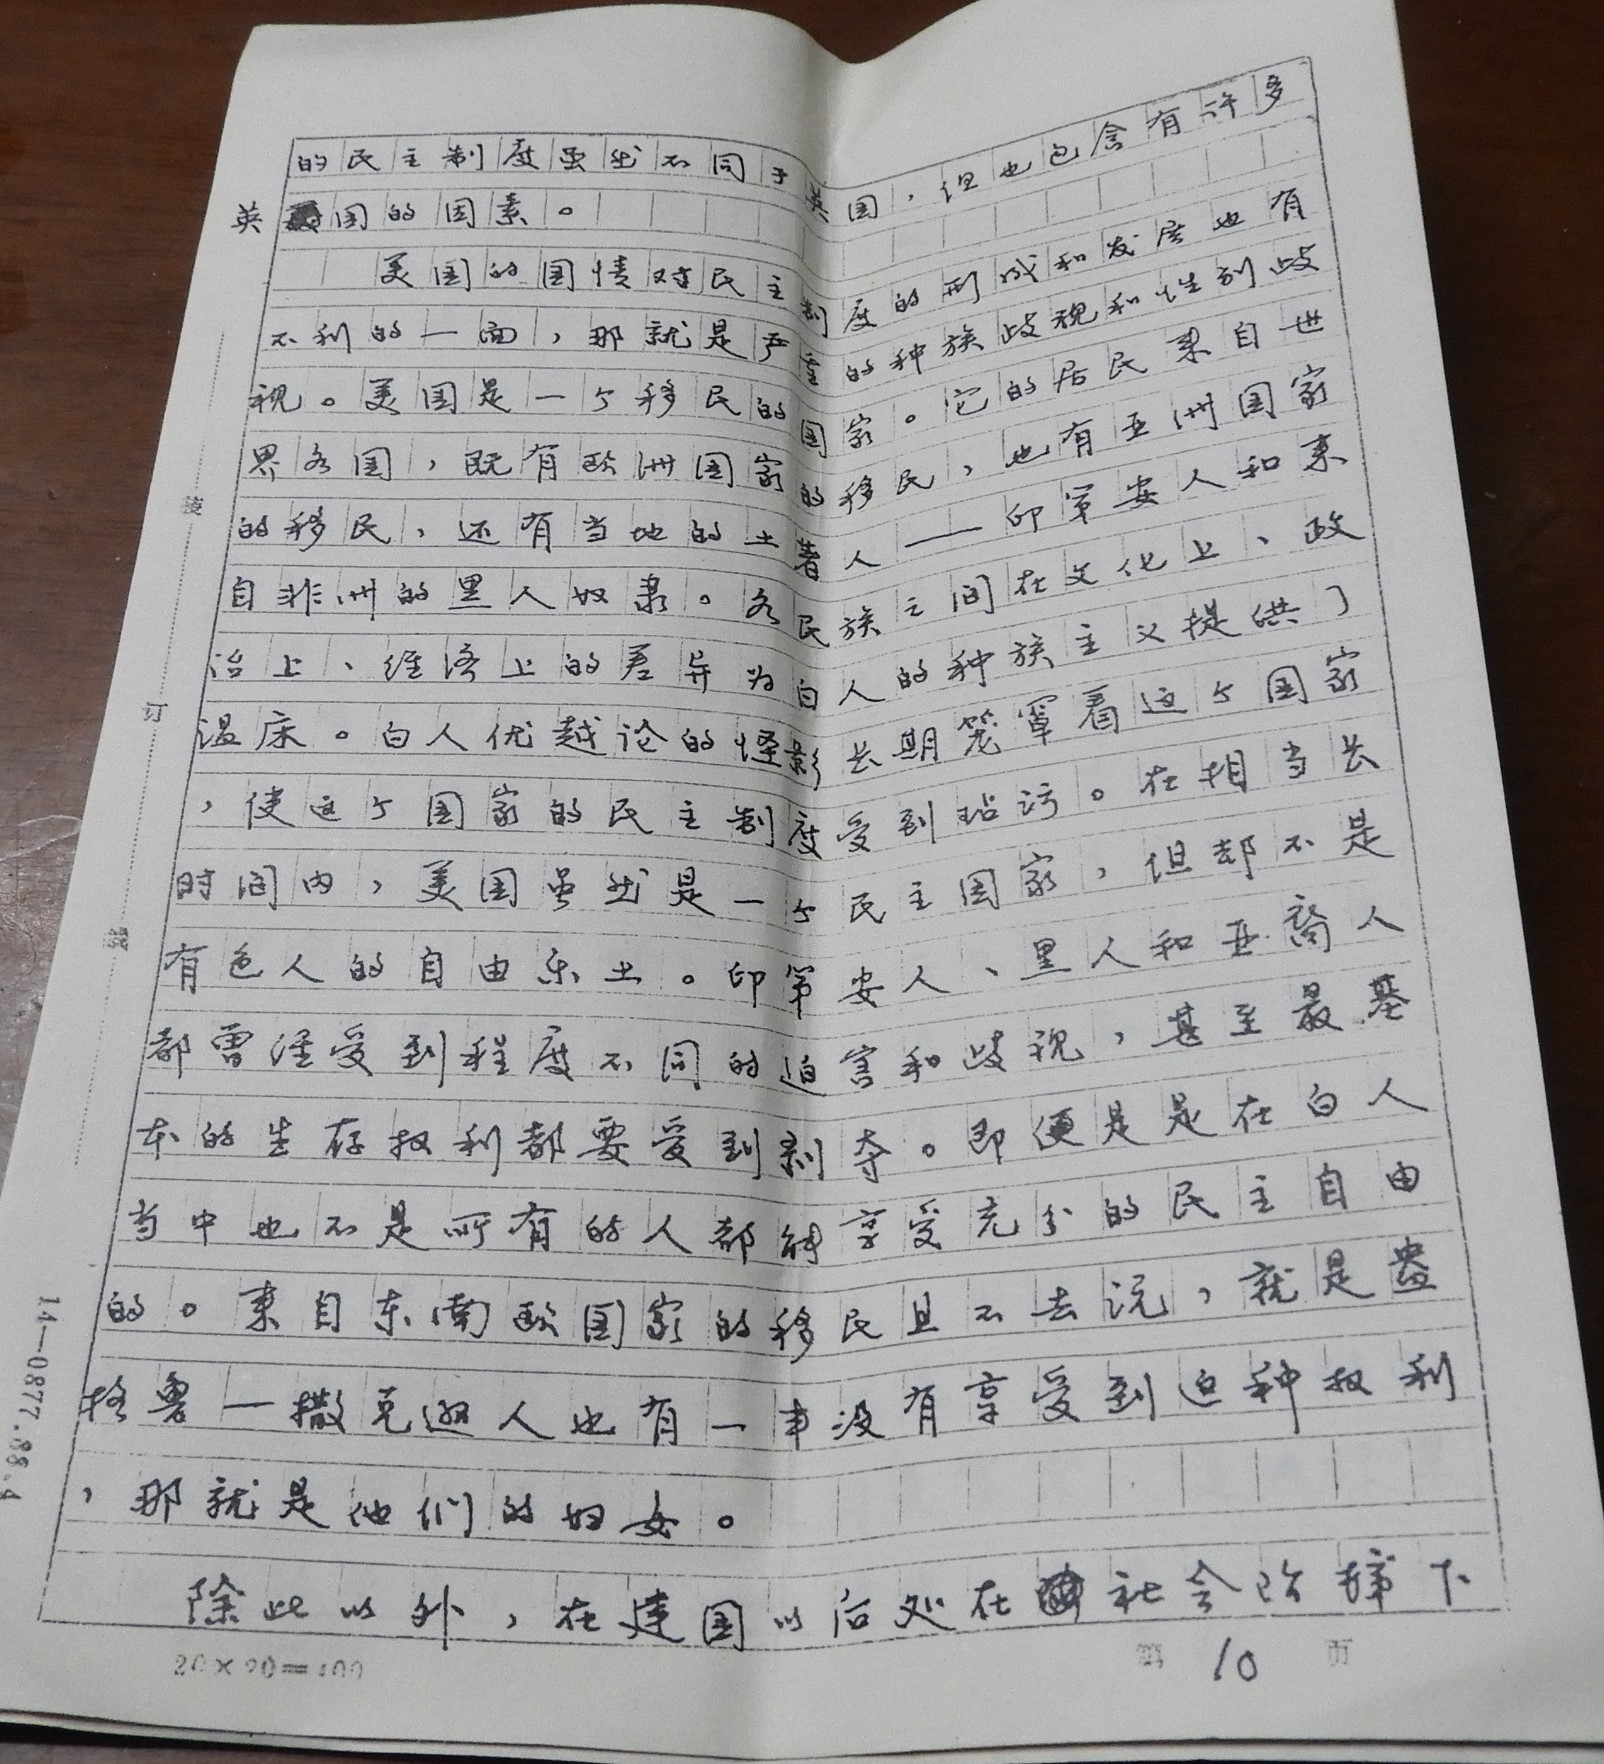 的民主制度虽然不同于英国，但也包含有许多
英国的因素。
美国的国情对民主制度的形成和发展也有
不利的一面，那就是严重的种族歧视和性别歧
视。美国是一个移民的国家。它的居民来自世
界各国，既有欧洲国家的移民，也有亚洲国家
的移民，还有当地的土著人——印第安人和来
自非洲的黑人奴隶。各民族之间在文化上、政
治上、经济上的差异为白人的种族主义提供了
温床。白人优越论的怪影长期笼罩着这个国家
，使这个国家的民主制度受到玷污。在相当长
时间内，美国虽然是一个民主国家，但却不是
有色人的自由乐土。印第安人、黑人和亚裔人
都曾经受到程度不同的迫害和歧视，甚至最基
本的生存权利都要受到剥夺。即便是是在白人
当中也不是所有的人都能享受充分的民主自由
的。来自东南欧国家的移民且不去说，就是盎
格鲁—撒克逊人也有一半没有享受到这种权利
，那就是他们的妇女。
除此以外，在建国以后处在社会阶梯下
20×20=400
第 10 页
装
订
线
14—0877.88.4